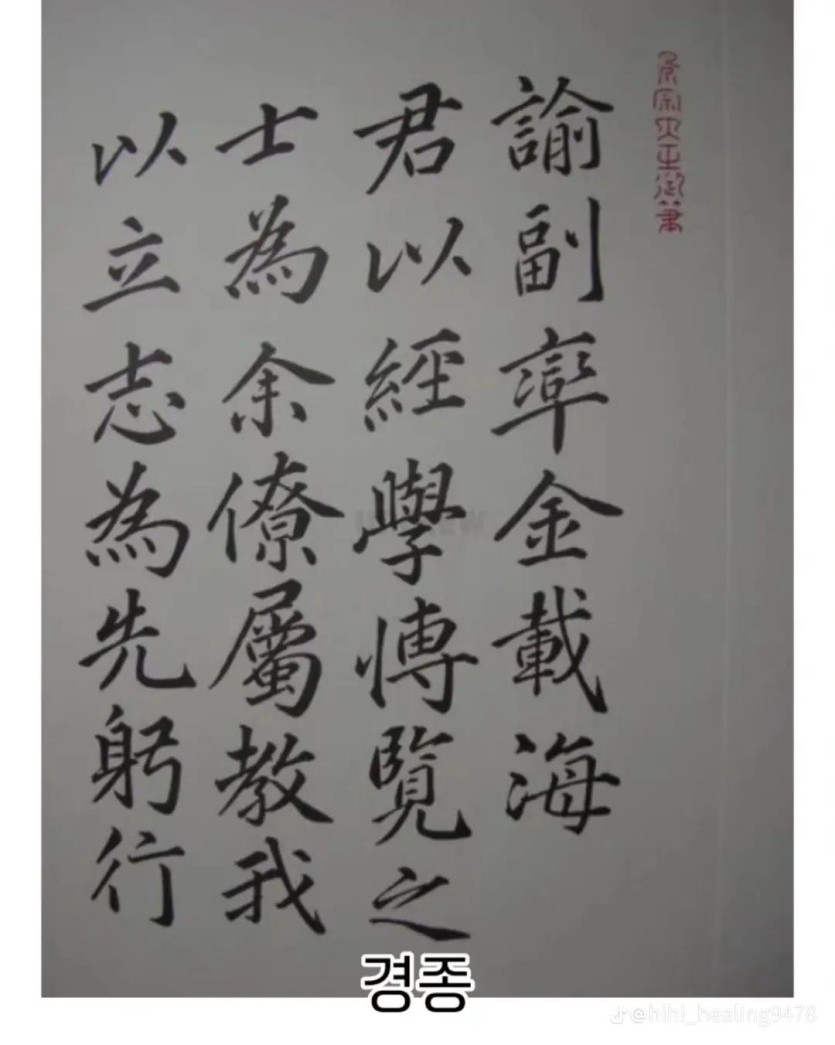 景宗大王御筆
諭副率金載海
君以經學愽覽之
士為余僚屬教我
以立志為先躬行
경종
@hihi_healing9478